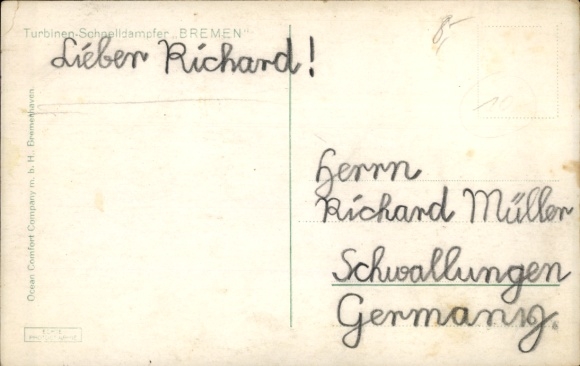 Turbinen-Schnelldampfer „BREMEN"
Lieber Richard!
8,-
10
Herrn
Richard Müller
Schwallungen
Germany.
Ocean Comfort Company m. b. H., Bremerhaven.